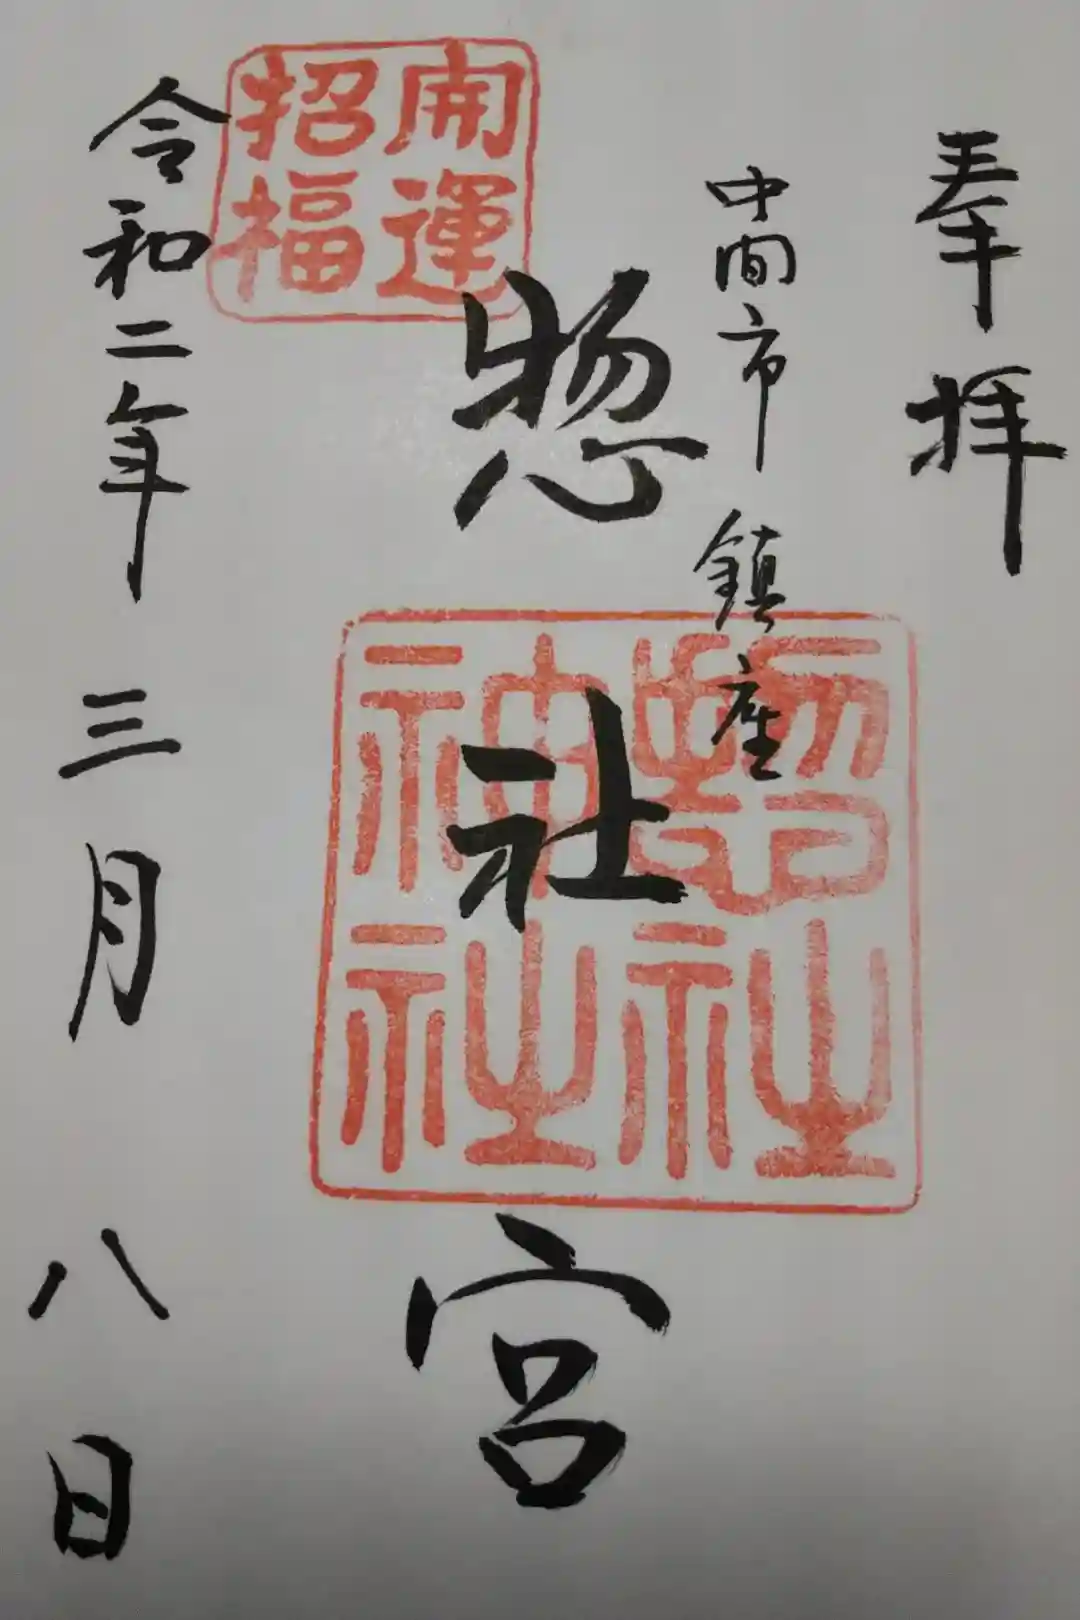 奉拝
中間市 鎮座
惣社宮
惣社
神社
開運
招福
令和二年 三月 八日